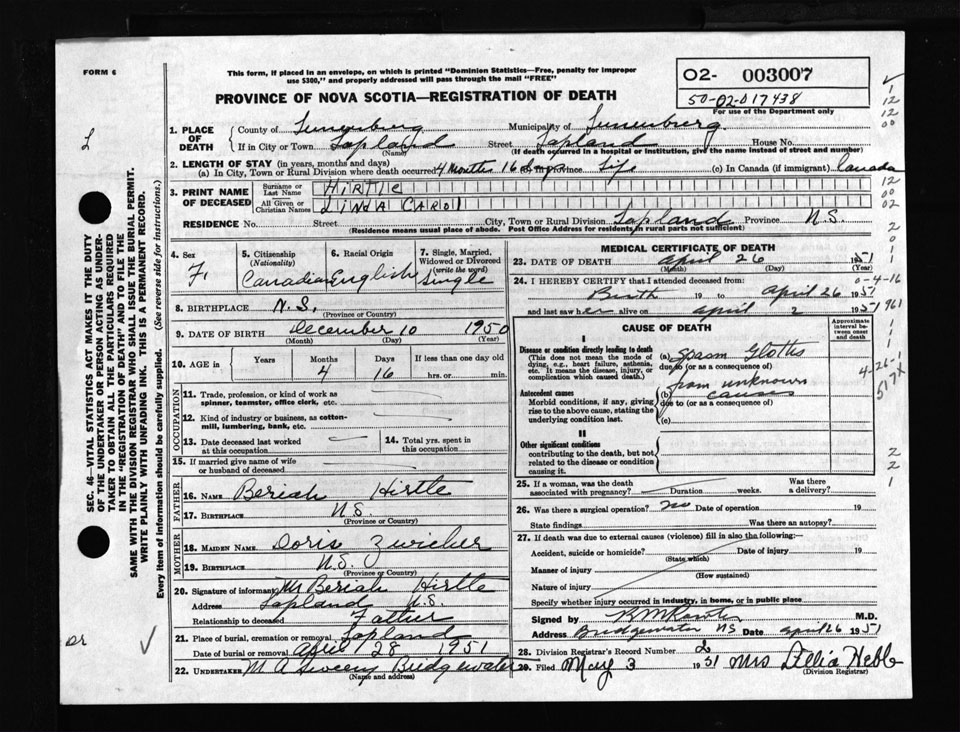 FORM 6
This form, if placed in an envelope, on which is printed "Dominion Statistics—Free, penalty for improper
use $300," and properly addressed will pass through the mail "FREE"
02- 003007
50-02-017438
For use of the Department only
PROVINCE OF NOVA SCOTIA—REGISTRATION OF DEATH
1. PLACE OF DEATH
County of Lunenburg Municipality of Lunenburg
If in City or Town Lapland Street Lapland House No.
(Name) (If death occurred in a hospital or institution, give the name instead of street and number)
2. LENGTH OF STAY (in years, months and days)
(a) In City, Town or Rural Division where death occurred 4 months 16 days In Province Life (c) In Canada (if immigrant) Canada
3. PRINT NAME OF DECEASED
Surname or Last Name HIRTLE
All Given or Christian Names LINDA CAROL
RESIDENCE No. Street City, Town or Rural Division Lapland Province N.S.
(Residence means usual place of abode. Post Office Address for residents in rural parts not sufficient)
4. Sex F.
5. Citizenship (Nationality) Canadian
6. Racial Origin English
7. Single, Married, Widowed or Divorced (write the word) Single
8. BIRTHPLACE N.S.
(Province or Country)
9. DATE OF BIRTH December 10 1950
(Month) (Day) (Year)
10. AGE in Years Months Days If less than one day old
4 16 hrs. or min.
OCCUPATION
11. Trade, profession, or kind of work as spinner, teamster, office clerk, etc.
12. Kind of industry or business, as cotton-mill, lumbering, bank, etc.
13. Date deceased last worked at this occupation
14. Total yrs. spent in this occupation
15. If married give name of wife or husband of deceased
FATHER
16. NAME Beriah Hirtle
17. BIRTHPLACE N.S.
(Province or Country)
MOTHER
18. MAIDEN NAME Doris Zwicker
19. BIRTHPLACE N.S.
(Province or Country)
20. Signature of informant M Beriah Hirtle
Address Lapland N.S.
Relationship to deceased Father
21. Place of burial, cremation or removal Lapland
Date of burial or removal April 28 1951
22. UNDERTAKER M A Sweeny Bridgewater
(Name and address)
MEDICAL CERTIFICATE OF DEATH
23. DATE OF DEATH April 26 1951
(Month) (Day) (Year)
0-4-16
24. I HEREBY CERTIFY that I attended deceased from:
Birth 19 to April 26 1951
and last saw her alive on April 2 1951
CAUSE OF DEATH
Approximate interval between onset and death
I
Disease or condition directly leading to death
(This does not mean the mode of dying, e.g., heart failure, asthenia, etc. It means the disease, injury, or complication which caused death.)
(a) Spasm Glottis
due to (or as a consequence of)
Antecedent causes
Morbid conditions, if any, giving rise to the above cause, stating the underlying condition last.
from unknown
(b) causes
due to (or as a consequence of)
(c)
II
Other significant conditions
contributing to the death, but not related to the disease or condition causing it.
25. If a woman, was the death associated with pregnancy? Duration weeks. Was there a delivery?
26. Was there a surgical operation? no Date of operation 19
State findings Was there an autopsy?
27. If death was due to external causes (violence) fill in also the following:—
Accident, suicide or homicide? Date of injury 19
(State which)
Manner of injury
(How sustained)
Nature of injury
Specify whether injury occurred in industry, in home, or in public place
Signed by M.D.
Address Bridgewater NS Date April 26 1951
28. Division Registrar's Record Number 2
29. Filed May 3 1951 Mrs Dellia Hebb
(Division Registrar)
SEC. 46—VITAL STATISTICS ACT MAKES IT THE DUTY
OF THE UNDERTAKER OR PERSON ACTING AS UNDER-
TAKER TO OBTAIN ALL THE PARTICULARS REQUIRED
IN THE "REGISTRATION OF DEATH" AND TO FILE THE
SAME WITH THE DIVISION REGISTRAR WHO SHALL ISSUE THE BURIAL PERMIT.
WRITE PLAINLY WITH UNFADING INK. THIS IS A PERMANENT RECORD.
Every item of information should be carefully supplied. (See reverse side for instructions.)